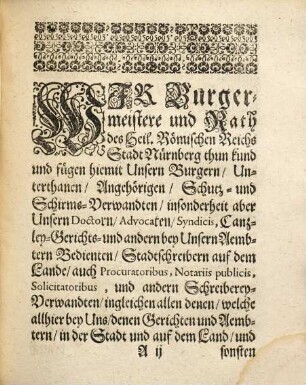 WIR Burger-
meistere und Rath
des Heil. Römischen Reichs
Stadt Nürnberg thun kund
und fügen hiemit Unsern Burgern/ Un-
terthanen/ Angehörigen/ Schutz- und
Schirms-Verwandten/ insonderheit aber
Unsern Doctorn/ Advocaten/ Syndicis, Canz-
ley-Gerichts- und andern bey Unsern Aemb-
tern Bedienten/ Stadtschreibern auf dem
Lande/ auch Procuratoribus, Notariis publicis,
Solicitatotibus, und andern Schreiberey-
Verwandten/ ingleichen allen denen/ welche
allhier bey Uns/ denen Gerichten und Aemb-
tern/ in der Stadt und auf dem Land/ und
A ij sonsten